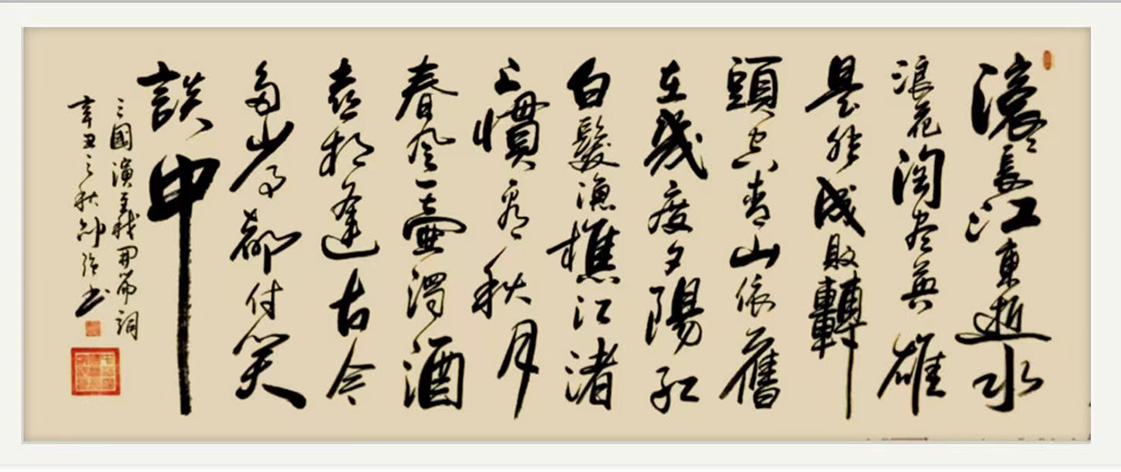 滚滚長江東逝水
浪花淘尽英雄
是非成敗轉
頭空青山依舊
在幾度夕陽紅
白髮漁樵江渚
上慣看秋月
春风一壺濁酒
喜相逢古今
多少事都付笑
談中
三國演義開篇詞
辛丑之秋书